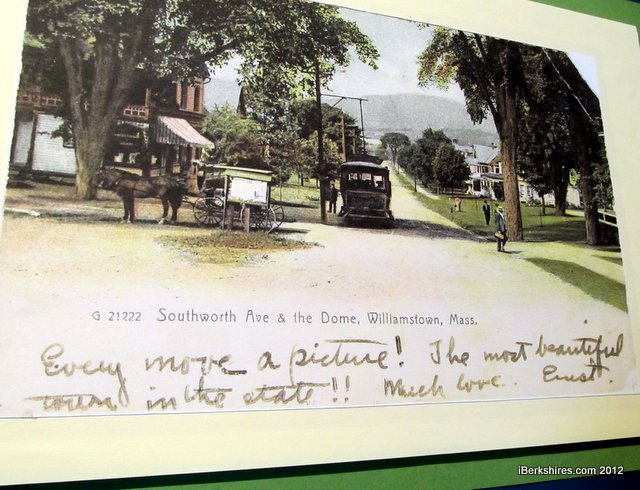 G 21222 Southworth Ave & the Dome, Williamstown, Mass.
Every move a picture! The most beautiful
town in the state!! Much love. Ernst.
iBerkshires.com 2012